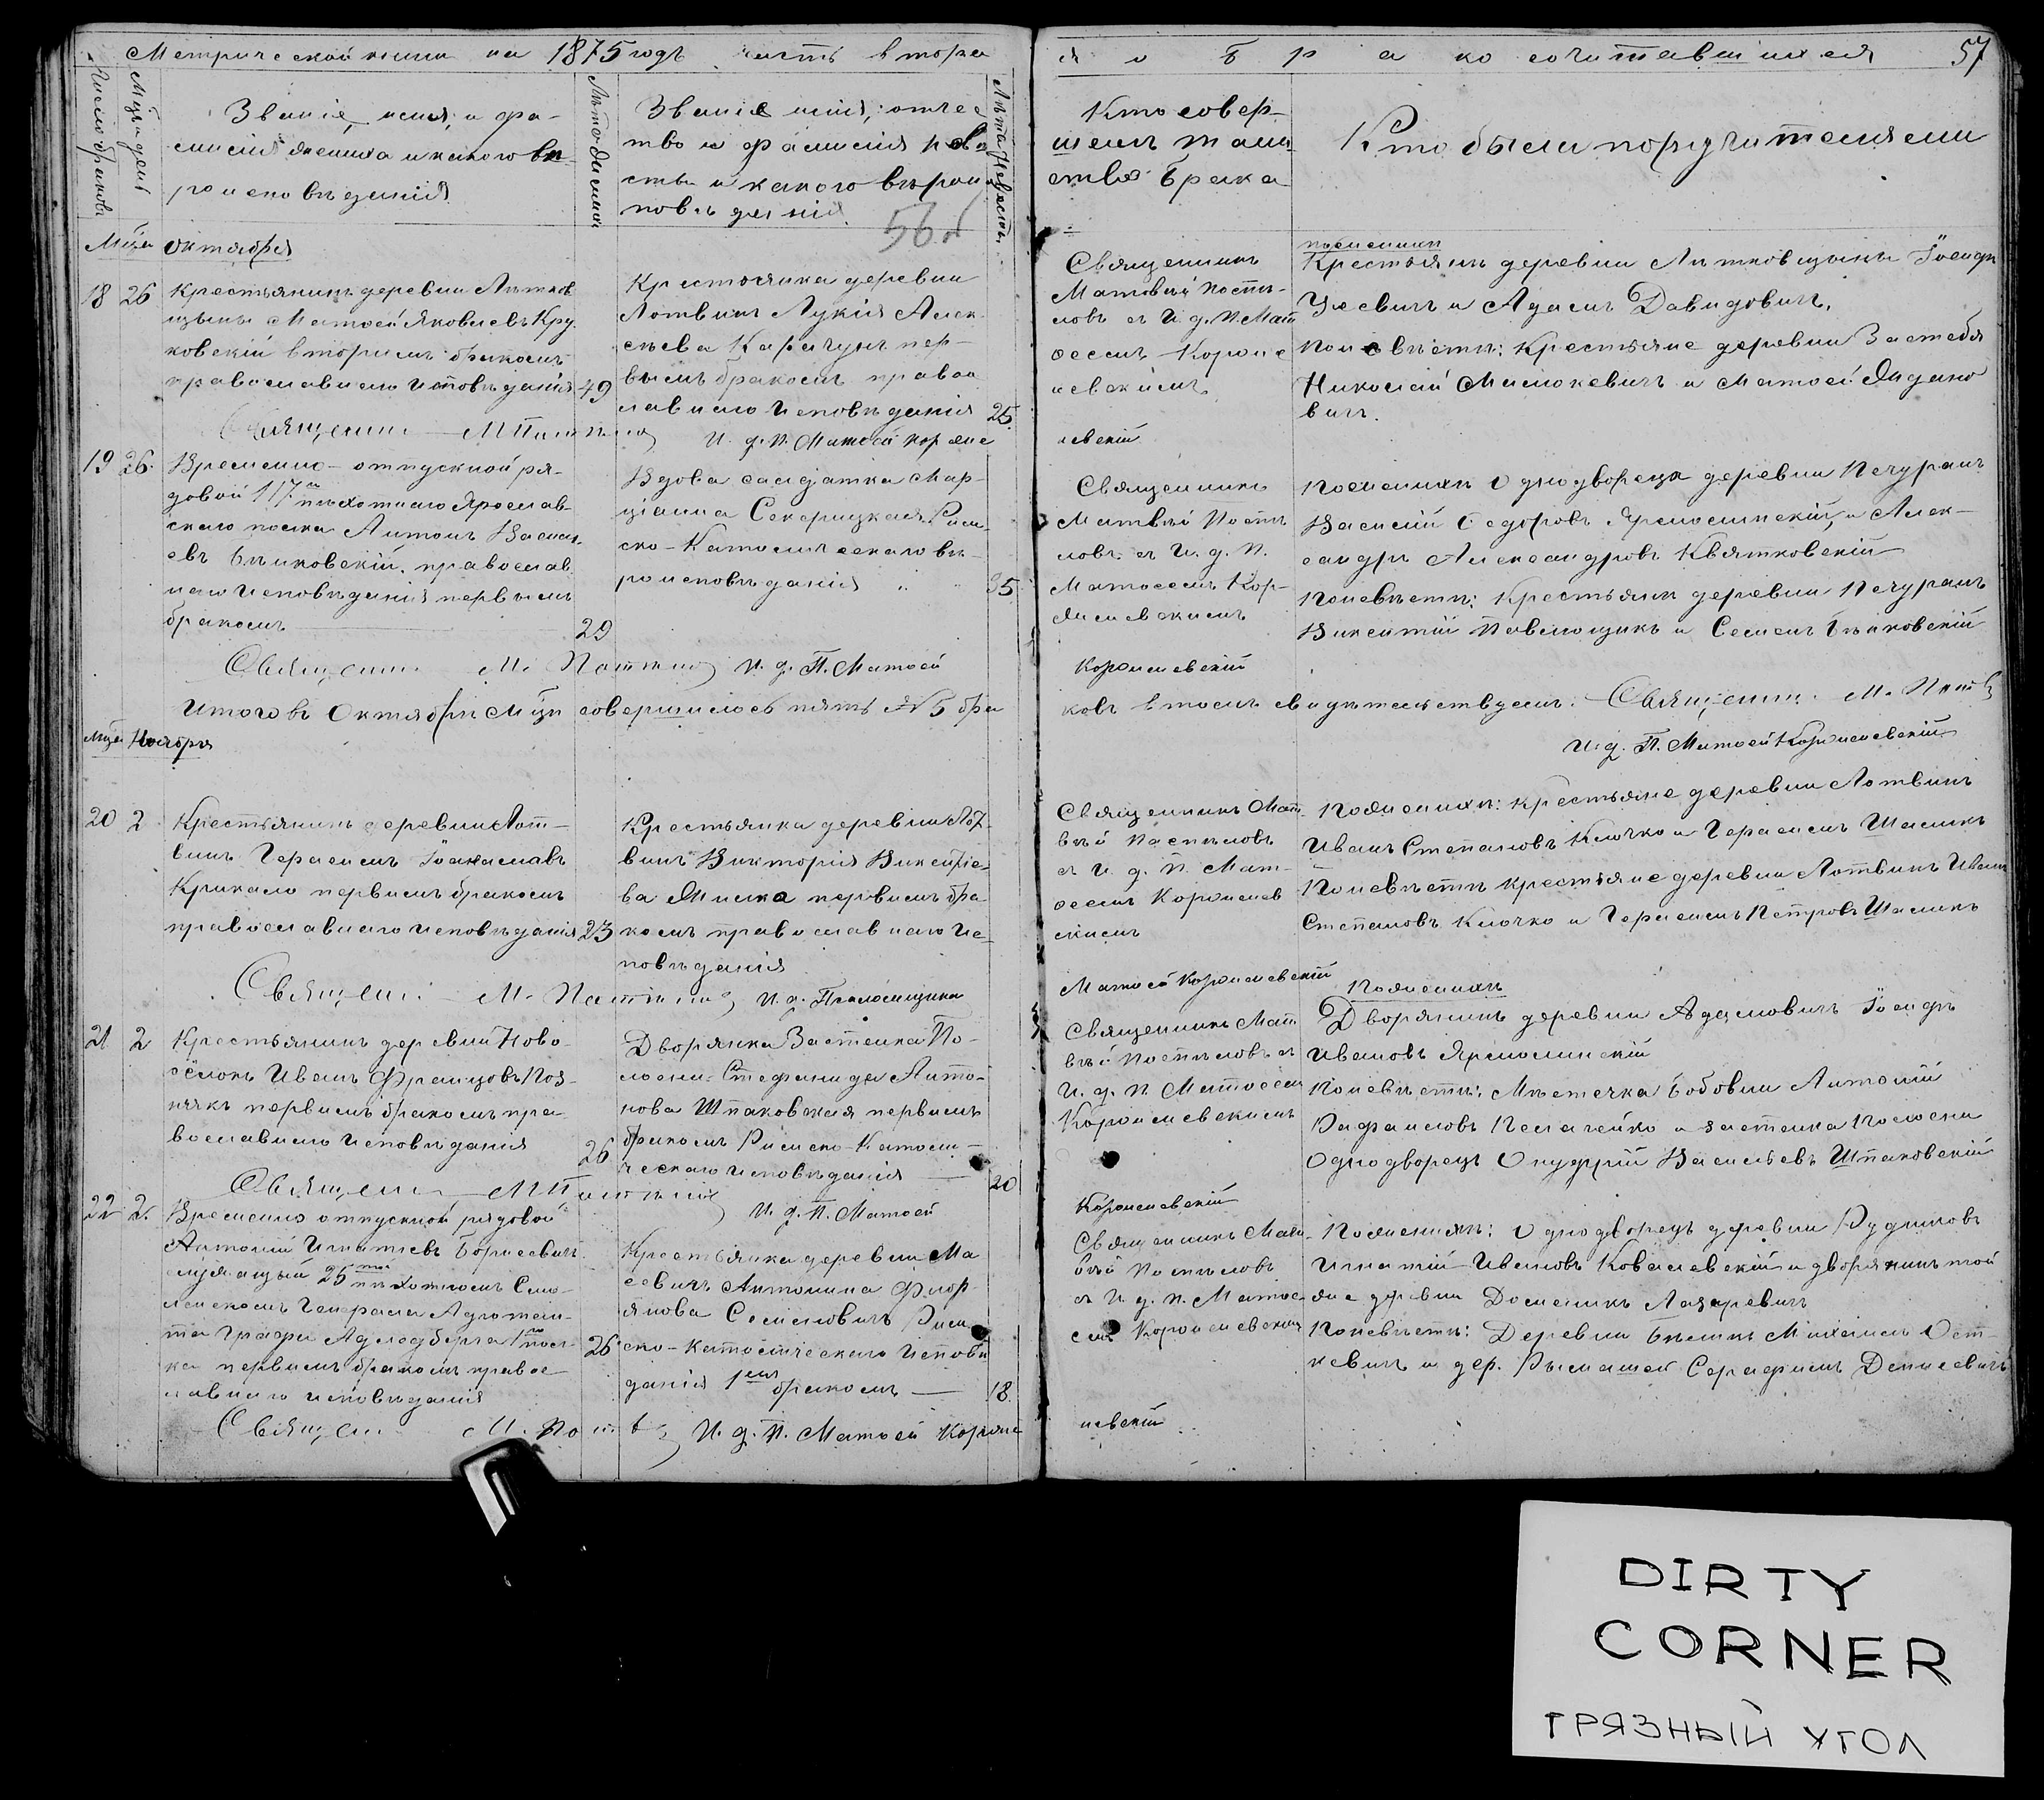 Метрической книги на 1875 годъ часть втора
я о бракосочитавшихся 57
Число браковъ
Мѣсяцъ и день
Званіе, имя, и фа-
милія жениха и какого вѣ-
роисповѣданія
Лѣта жениха
Званіе имя, отче
тво и фамилія невѣ
сты и какого вѣроис
повѣданія
Лѣта невѣсты
56 об
Кто совер-
шалъ таин-
ство брака
Кто были поручителями
Мѣца Октября
18 26
Крестьянинъ деревни Лѣтков
щины Матѳей Яковлевъ Кру
ковскій вторымъ бракомъ
православнаго исповѣданія 49
Крестьянка деревни
Лотвинъ Лукія Алек
сѣева Карачунъ пер-
вымъ бракомъ право
славнаго исповѣданія 25
Священникъ
Матвѣй Постѣ-
ловъ съ И. д. П. Мат
ѳеемъ Короле
невскимъ
по женихѣ
Крестьянинъ деревни Лѣтковщины Іосифъ
и Адамъ Давидовичъ,
по невѣстѣ: Крестьяне деревни
Николай Милюкевичъ и Матѳей Ждано
вичъ.
Священникъ М П
И. д. П. Матѳей Короле
невскій
19 26.
Временно-отпускной ря-
довой 117го пѣхотнаго Ярослав-
скаго полка Антонъ Васил
евъ Быковскій. православ
наго исповѣданія первымъ
бракомъ 29
Вдова солдатка Мар-
ціанна Секерицкая Рим-
ско-Католическаго вѣ-
роисповѣданія 35
Священникъ
Матвѣй Постѣ
ловъ съ И. д. П.
Матѳеемъ Кор-
женевскимъ
по женихѣ Однодворецъ деревни Печуранъ
Василій Ѳедоровъ Ярмолинскій, и Алек-
сандръ Александровъ Квятковскій
по невѣстѣ: Крестьяне деревни Печуранъ
Викентій Павлющикъ и Семенъ Быковскій
Священникъ М. И. д. П. Матѳей
Корженевскій
Итого въ Октябрѣ Мѣцѣ совершилось пять № 5 бра
ковъ въ томъ свидѣтельствуемъ: Священникъ М.
И. д. П. Матѳей Корженевскій
Мѣца Ноября
20 2
Крестьянинъ деревни Лот-
винъ Герасимъ
Крикало первымъ бракомъ
православнаго исповѣданія 23
Крестьянка деревни Лот
винъ Викторія Викентіе
ва первымъ бра
комъ православнаго ис-
повѣданія
Священникъ Мат
вѣй Постѣловъ
съ И. д. П. Мат-
ѳеемъ Корженев
скимъ
по женихѣ: крестьяне деревни Лотвинъ
Иванъ Степановъ Клочко и Герасимъ Шаликъ
По невѣстѣ крестьяне деревни Лотвинъ Иванъ
Степановъ Клочко и Герасимъ Петровъ Шаликъ
Священ: М. И. д. Псаломщика
Матѳей Корженевскій
21 2
Крестьянинъ деревни Ново-
сёлокъ Иванъ Францовъ Поз-
някъ первымъ бракомъ пра-
вославнаго исповѣданія 26
Дворянка Застенка По-
лосни Стефанида Анто-
нова Шпаковская первымъ
бракомъ Римско-Католи-
ческаго исповѣданія 20
Священникъ Мат
вѣй Постѣловъ съ
И. д. П. Матѳеемъ
Корженевскимъ
по женихѣ
Дворянинъ деревни Адамовичъ Іосифъ
Ивановъ Ярмолинскій
По невѣстѣ: Мѣстечка Бобовни Антоній
Рафаиловъ и застенка Полосни
Однодворецъ Онуфрій Васильевъ Шпаковскій
Священ М
И. д. П. Матѳей
Корженевскій
22 2.
Временно отпускной рядовой
Антоній Игнатіевъ Борисевичъ
служащій 25мъ пѣхотномъ Смо-
ленскомъ Генерала Адютан-
та Графа Адлерберга 1го пол-
ка первымъ бракомъ право-
славнаго исповѣданія 26
Крестьянка деревни Ма
севичъ Антонина Флор
янова Семеновичъ Рим
ско-католическаго исповѣ
данія 1мъ бракомъ 18
Священникъ Мат
вѣй Постѣловъ
съ И. д. П. Матѳе
емъ Корженевским
По женихѣ: Однодворецъ деревни Рудниковъ
Игнатій Ивановъ Ковалевскій и дворянинъ той
же деревни Доменикъ Лазаревичъ
По невѣстѣ: Деревни Михаилъ Ост-
кевичъ и дер. Серафимъ Денисевичъ
Священ М. По
И. д. П. Матѳей Корже
невскій
DIRTY
CORNER
ГРЯЗНЫЙ УГОЛ